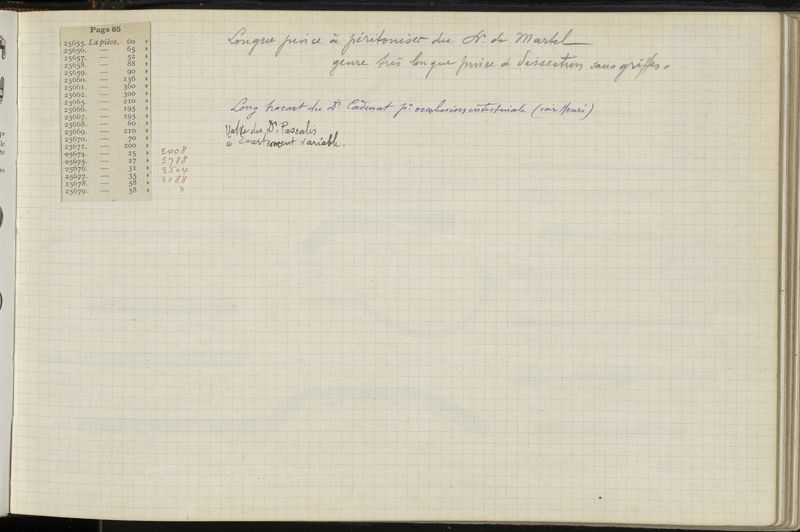 Page 85
25655. La pièce. 60 »
25656. — 65 »
25657. — 52 »
25658. — 88 »
25659. — 90 »
25660. — 136 »
25661. — 360 »
25662. — 300 »
25665. — 210 »
25666. — 195 »
25667. — 195 »
25668. — 60 »
25669. — 210 »
25670. — 70 »
25671. — 200 »
25674. — 25 » 2008
25675. — 27 » 3788
25676. — 31 » 3504
25677. — 35 » 3188
25678. — 58 »
25679. — 58 »
Longue pince à péritoniser du Dr. de Martel
genre très longue pince à dissection sans griffes.
Long trocart du Dr Cadenat pr occlusion intestinale (voir Henri)
Valve du Dr. Pascalis
à écartement variable.